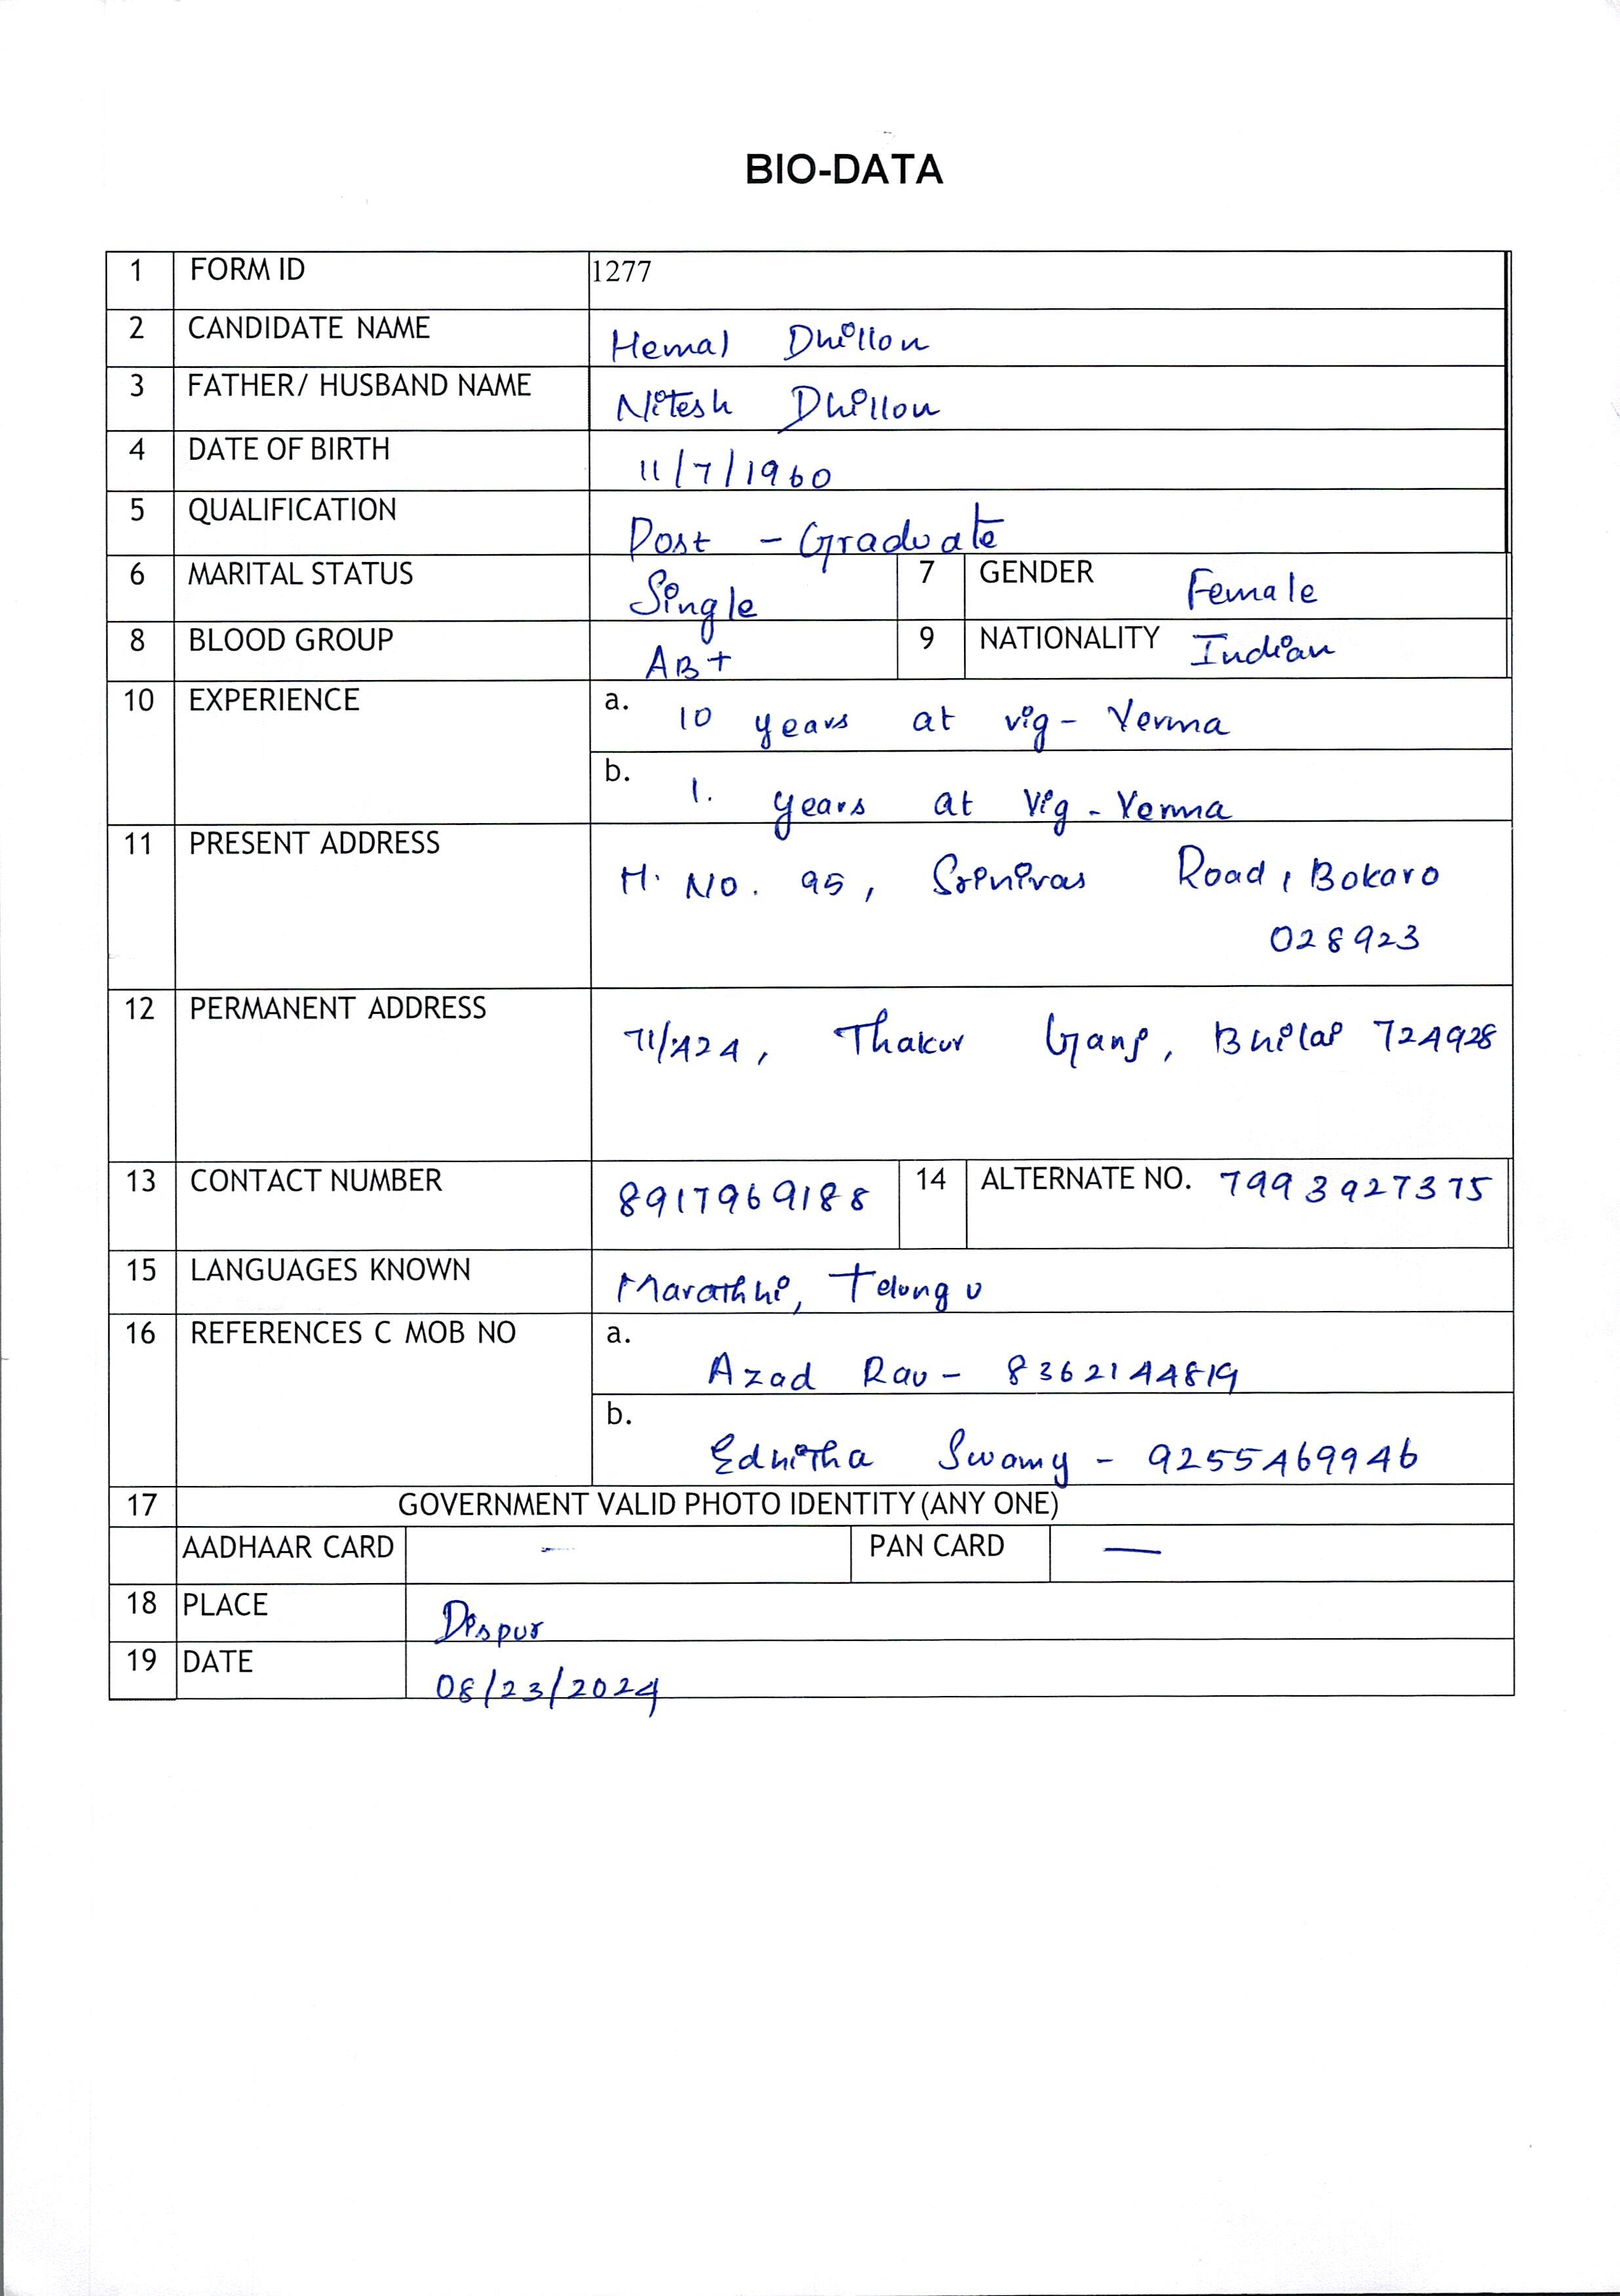 BIO-DATA
1 FORM ID 1277
2 CANDIDATE NAME Hemal Dhillon
3 FATHER/ HUSBAND NAME Nitesh Dhillon
4 DATE OF BIRTH 11/7/1960
5 QUALIFICATION Post - Graduate
6 MARITAL STATUS Single 7 GENDER Female
8 BLOOD GROUP AB+ 9 NATIONALITY Indian
10 EXPERIENCE a. 10 years at vig - Verma
b. 1. years at Vig - Verma
11 PRESENT ADDRESS H. No. 95, Srinivas Road, Bokaro
028923
12 PERMANENT ADDRESS 71/424, Thakur Ganj, Bhilai 724928
13 CONTACT NUMBER 8917969188 14 ALTERNATE NO. 7993927375
15 LANGUAGES KNOWN Marathhi, Telungu
16 REFERENCES C MOB NO a. Azad Rau - 8362144819
b. Ednitha Swamy - 9255469946
17 GOVERNMENT VALID PHOTO IDENTITY (ANY ONE)
AADHAAR CARD - PAN CARD —
18 PLACE Dispur
19 DATE 08/23/2024